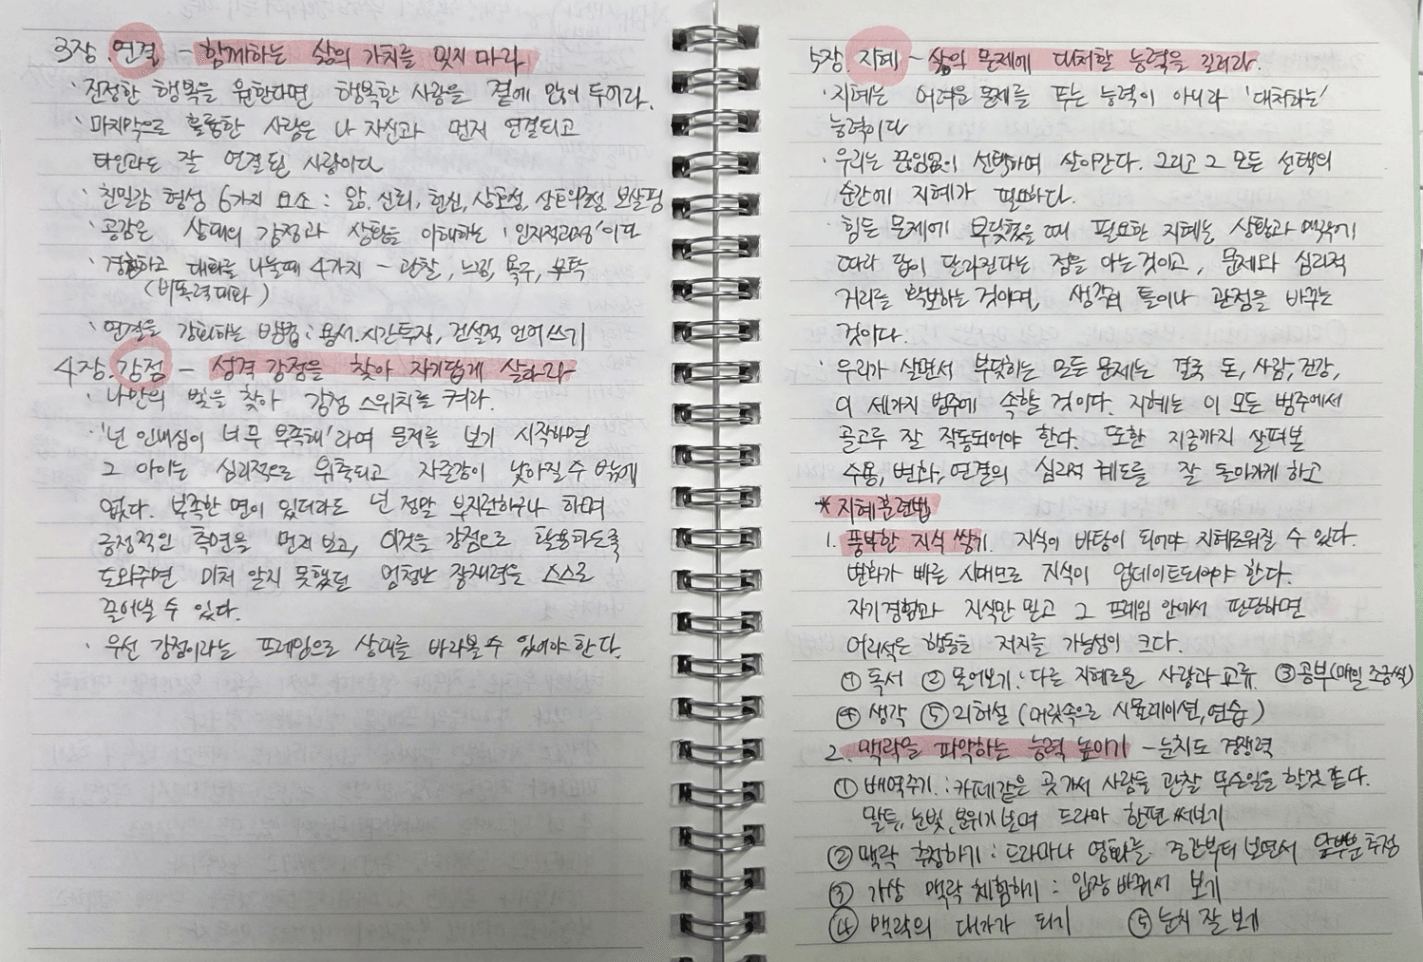 3장. 연결 - 함께하는 삶의 가치를 잊지 마라
· 진정한 행복을 원한다면 행복한 사람을 곁에 많이 두어라.
· 마지막으로 훌륭한 사람은 나 자신과 먼저 연결되고
타인과도 잘 연결된 사람이다
· 친밀감 형성 6가지 요소 : 앎, 신뢰, 헌신, 상호성, 상호의존성, 보살핌
· 공감은 상대의 감정과 상황을 이해하는 '인지적과정'이다
· 경청하고 대화를 나눌때 4가지 - 관찰, 느낌, 욕구, 부탁
(비폭력대화)
· 연결을 강화하는 방법 : 용서, 시간투자, 건설적 언어쓰기
4장. 강점 - 성격 강점을 찾아 자기답게 살아라
· 나만의 빛을 찾아 강점 스위치를 켜라.
· '넌 인내심이 너무 부족해'라며 문제를 보기 시작하면
그 아이는 심리적으로 위축되고 자존감이 낮아질 수 밖에
없다. 부족한 면이 있더라도 넌 정말 부지런하구나 하며
긍정적인 측면을 먼저 보고, 이것을 강점으로 활용하도록
도와주면 미처 알지 못했던 엄청난 잠재력을 스스로
끌어낼 수 있다.
· 우선 강점이라는 프레임으로 상대를 바라볼 수 있어야 한다.
5장. 지혜 - 삶의 문제에 대처할 능력을 길러라.
· 지혜는 어려운 문제를 푸는 능력이 아니라 '대처하는'
능력이다
· 우리는 끊임없이 선택하며 살아간다. 그리고 그 모든 선택의
순간에 지혜가 필요하다.
· 힘든 문제에 부딪혔을 때 필요한 지혜는 상황과 맥락에
따라 답이 달라진다는 점을 아는 것이고, 문제와 심리적
거리를 확보하는 것이며, 생각의 틀이나 관점을 바꾸는
것이다.
· 우리가 살면서 부딪히는 모든 문제는 결국 돈, 사람, 건강,
이 세가지 범주에 속할 것이다. 지혜는 이 모든 범주에서
골고루 잘 작동되어야 한다. 또한 지금까지 살펴본
수용, 변화, 연결의 심리적 궤도를 잘 돌아가게 하고
* 지혜훈련법
1. 풍부한 지식 쌓기. 지식이 바탕이 되어야 지혜로워질 수 있다.
변화가 빠른 시대므로 지식이 업데이트되어야 한다.
자기경험과 지식만 믿고 그 프레임 안에서 판단하면
어리석은 행동을 저지를 가능성이 크다.
① 독서 ② 물어보기 : 다른 지혜로운 사람과 교류 ③ 공부(매일 조금씩)
④ 생각 ⑤ 리허설 (머릿속으로 시뮬레이션, 연습)
2. 맥락을 파악하는 능력 높이기 - 눈치도 경쟁력
① 배역주기 : 카페같은 곳에서 사람들 관찰 무슨일을 할것 같다.
말투, 눈빛, 분위기 보며 드라마 한편 써보기
② 맥락 추정하기 : 드라마나 영화를 중간부터 보면서 앞부분 추정
③ 가상 맥락 체험하기 : 입장 바꿔서 보기
④ 맥락의 대가가 되기 ⑤ 눈치 잘 보기